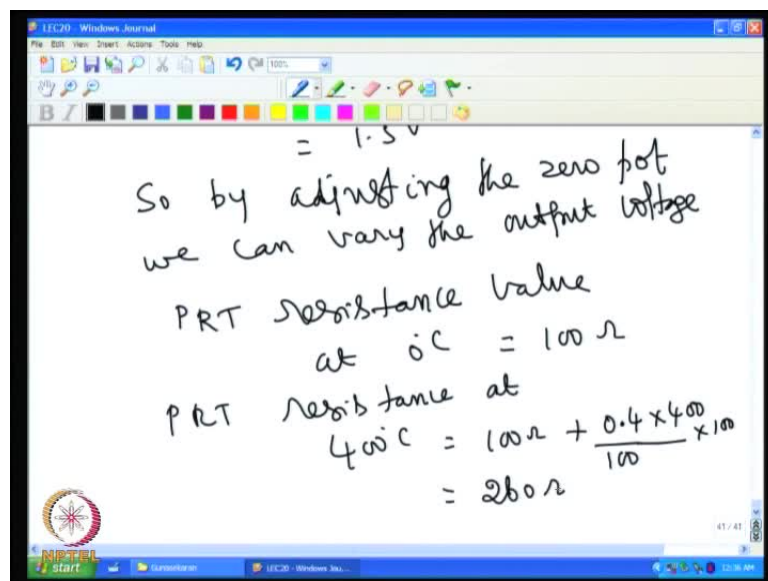 LEC20 - Windows Journal
File Edit View Insert Actions Tools Help
100%
B I
= 1.5V
So by adjusting the zero pot
we can vary the output voltage
PRT resistance value
at 0°C = 100 Ω
PRT resistance at
400°C = 100Ω + 0.4 × 400 / 100 × 100
= 260 Ω
41 / 41
NPTEL
start Gunasekaran LEC20 - Windows Jou... 12:36 AM